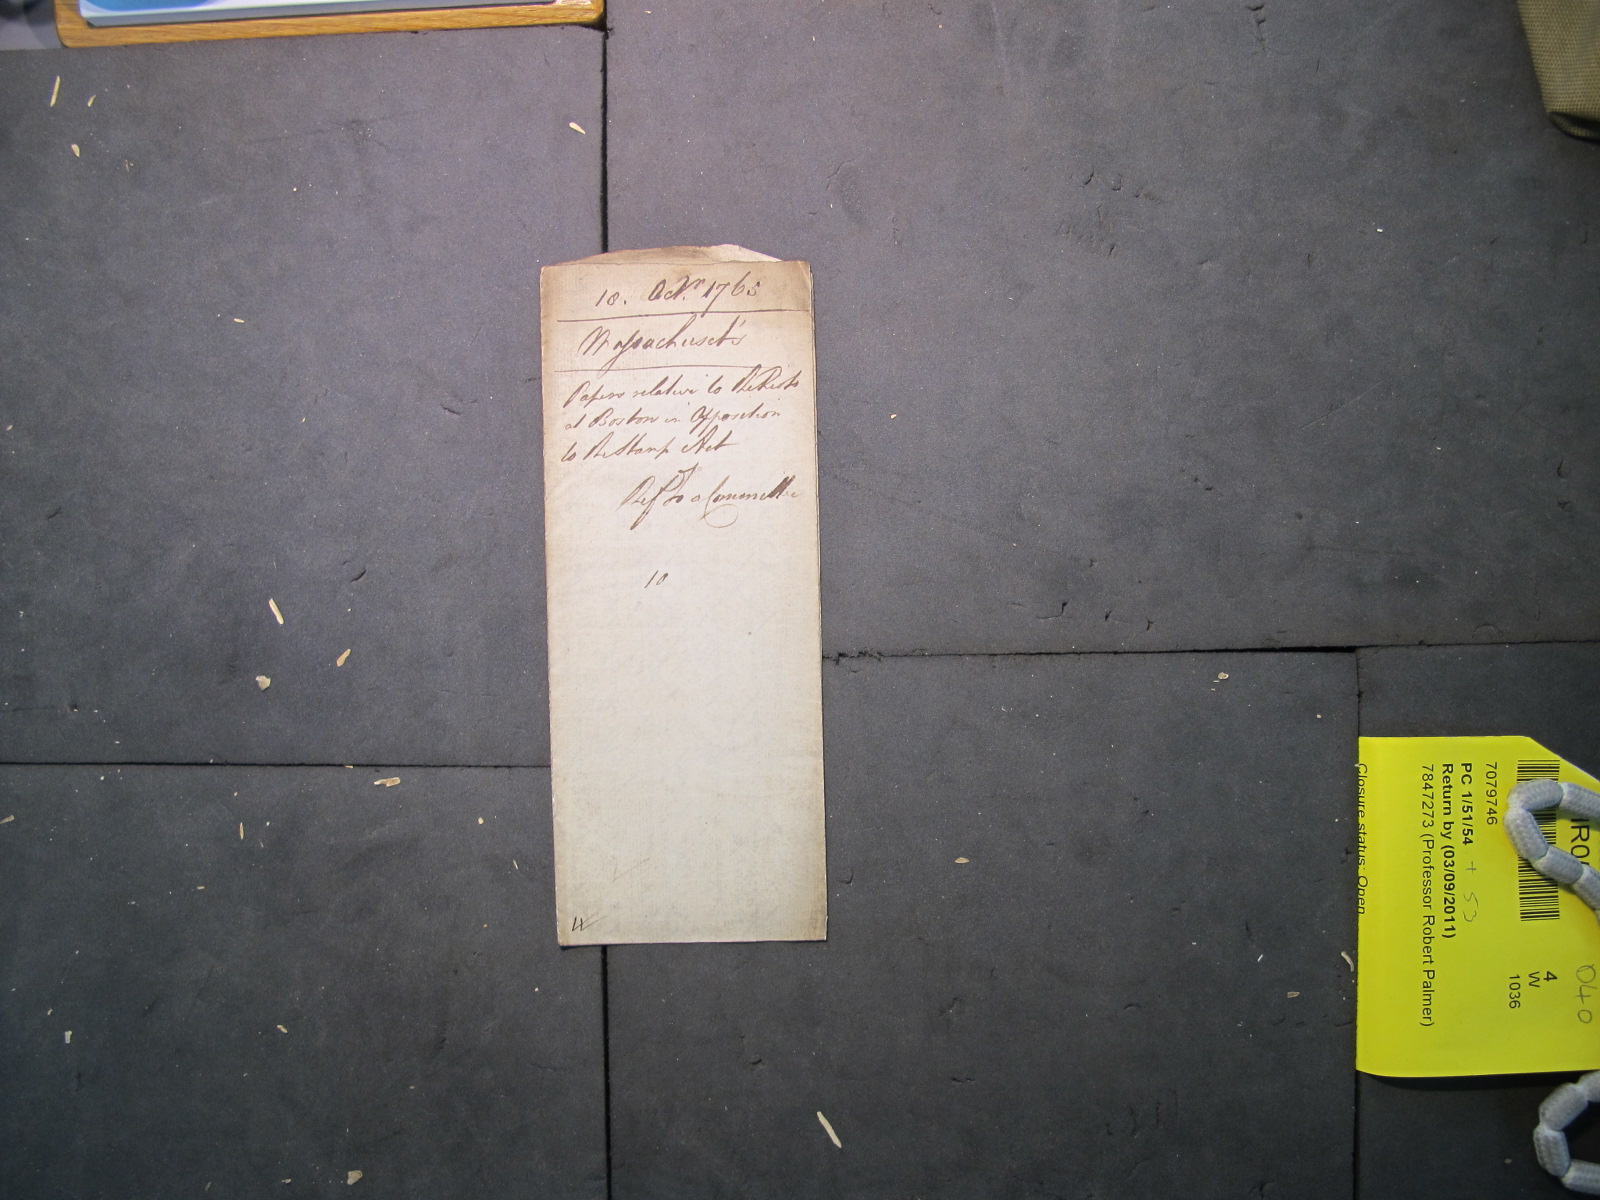 18. Octr. 1765
Massachuset's
Papers relative to the Riots
at Boston in Opposition
to the Stamp Act
Refd. to a Committee
10
7079746
PC 1/51/54 + 53
Return by (03/09/2011)
7847273 (Professor Robert Palmer)
Closure status: Open
4
W
1036
040